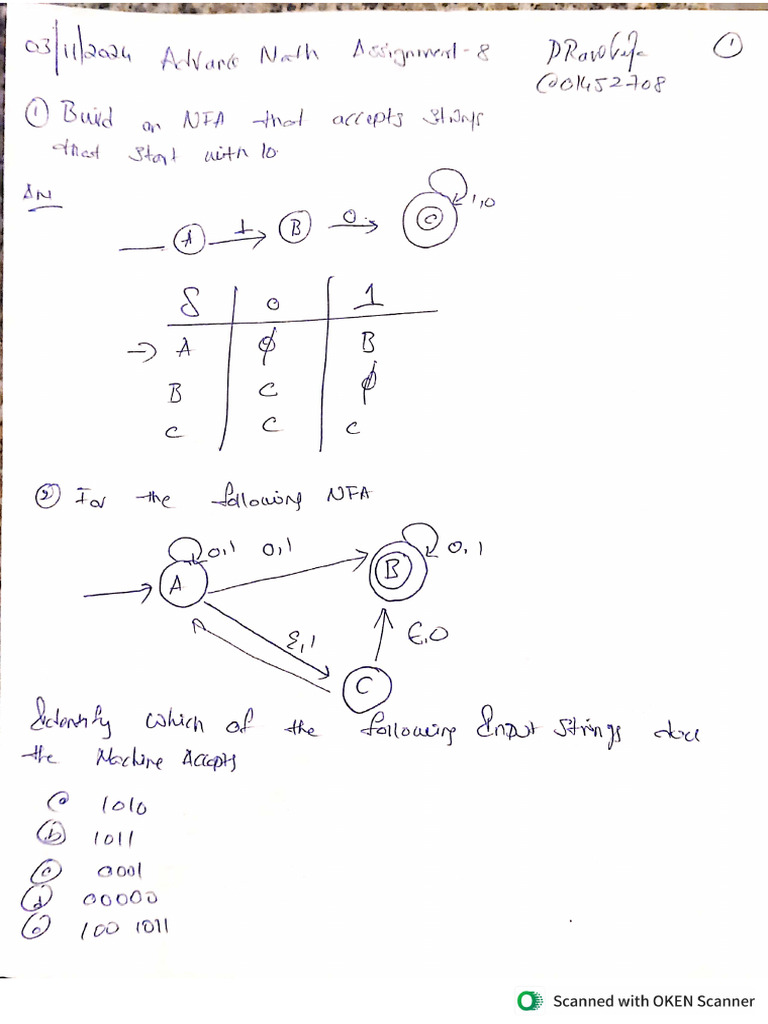 03/11/2024 Advance Math Assignment-8 ①
@01452708
① Build an NFA that accepts strings
that start with 10.
AN
A 1 B 0 C 1,0
δ 0 1
→ A ϕ B
B C ϕ
C C C
② For the following NFA
0,1 0,1 0,1
A B
ε,1 ε,0
C
Identify which of the following Input strings does
the Machine Accepts
ⓐ 1010
ⓑ 1011
ⓒ 0001
ⓓ 00000
ⓔ 100 1011
Scanned with OKEN Scanner